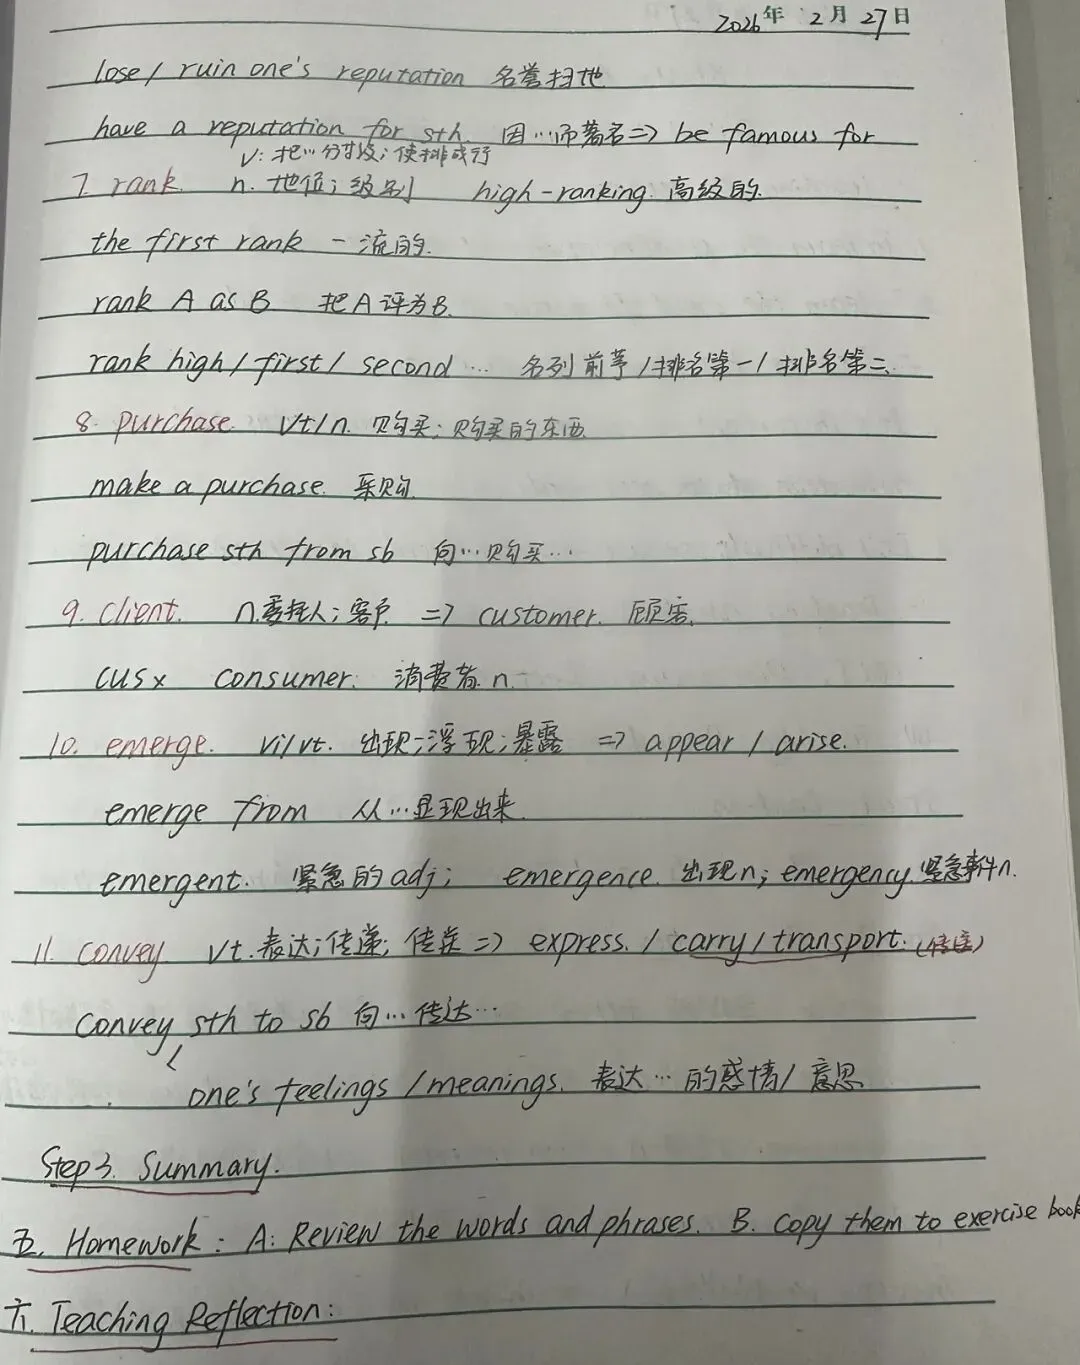 2026年 2月 27日
lose / ruin one's reputation 名誉扫地
have a reputation for sth. 因…而著名 => be famous for
v: 把…分等级; 使排成行
7. rank. n. 地位; 级别 high-ranking. 高级的.
the first rank 一流的.
rank A as B 把A评为B.
rank high / first / second … 名列前茅 / 排名第一 / 排名第二.
8. purchase. vt/n. 购买; 购买的东西
make a purchase. 采购.
purchase sth from sb 向…购买…
9. client. n.委托人; 客户 => customer. 顾客.
cus× consumer. 消费者 n.
10. emerge. vi/vt. 出现; 浮现; 暴露 => appear / arise.
emerge from 从…显现出来.
emergent. 紧急的 adj; emergence. 出现n; emergency. 紧急事件n.
11. convey. vt. 表达; 传递; 传送 => express. / carry / transport.
convey sth to sb 向…传达…
one's feelings / meanings. 表达…的感情 / 意思
Step 3. Summary.
五. Homework: A: Review the words and phrases. B. Copy them to exercise book
六. Teaching Reflection: